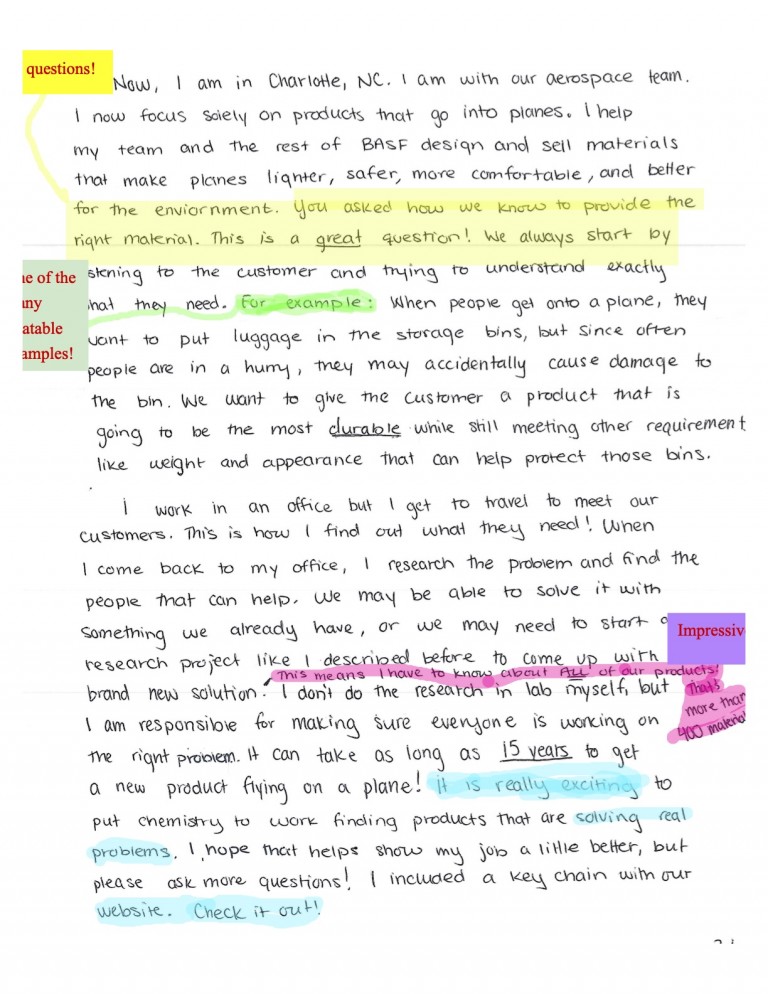 questions!
Now, I am in Charlotte, NC. I am with our aerospace team.
I now focus solely on products that go into planes. I help
my team and the rest of BASF design and sell materials
that make planes lighter, safer, more comfortable, and better
for the enviornment. You asked how we know to provide the
right material. This is a great question! We always start by
stening to the customer and trying to understand exactly
hat they need. For example: When people get onto a plane, they
want to put luggage in the storage bins, but since often
people are in a hurry, they may accidentally cause damage to
the bin. We want to give the customer a product that is
going to be the most durable while still meeting other requirement
like weight and appearance that can help protect those bins.
e of the
ny
atable
amples!
I work in an office but I get to travel to meet our
customers. This is how I find out what they need! When
I come back to my office, I research the problem and find the
people that can help. We may be able to solve it with
something we already have, or we may need to start a
research project like I described before to come up with
Impressiv
This means I have to know about ALL of our products!
That's
more than
400 material
brand new solution. I don't do the research in lab myself, but
I am responsible for making sure everyone is working on
the right problem. It can take as long as 15 years to get
a new product flying on a plane! It is really exciting to
put chemistry to work finding products that are solving real
problems. I hope that helps show my job a little better, but
please ask more questions! I included a key chain with our
website. Check it out!